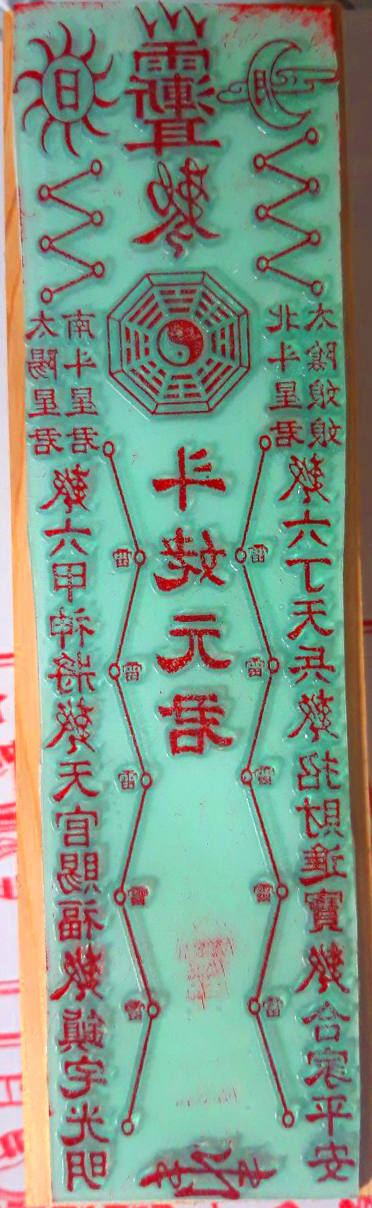 日
月
敕
太陽星君
南斗星君
敕六甲神將敕天官賜福敕鎮宅光明
雷
雷
雷
雷
雷
斗姥元君
雷
雷
雷
雷
雷
北斗星君
太陰娘娘
敕六丁天兵敕招財進寶敕合家平安